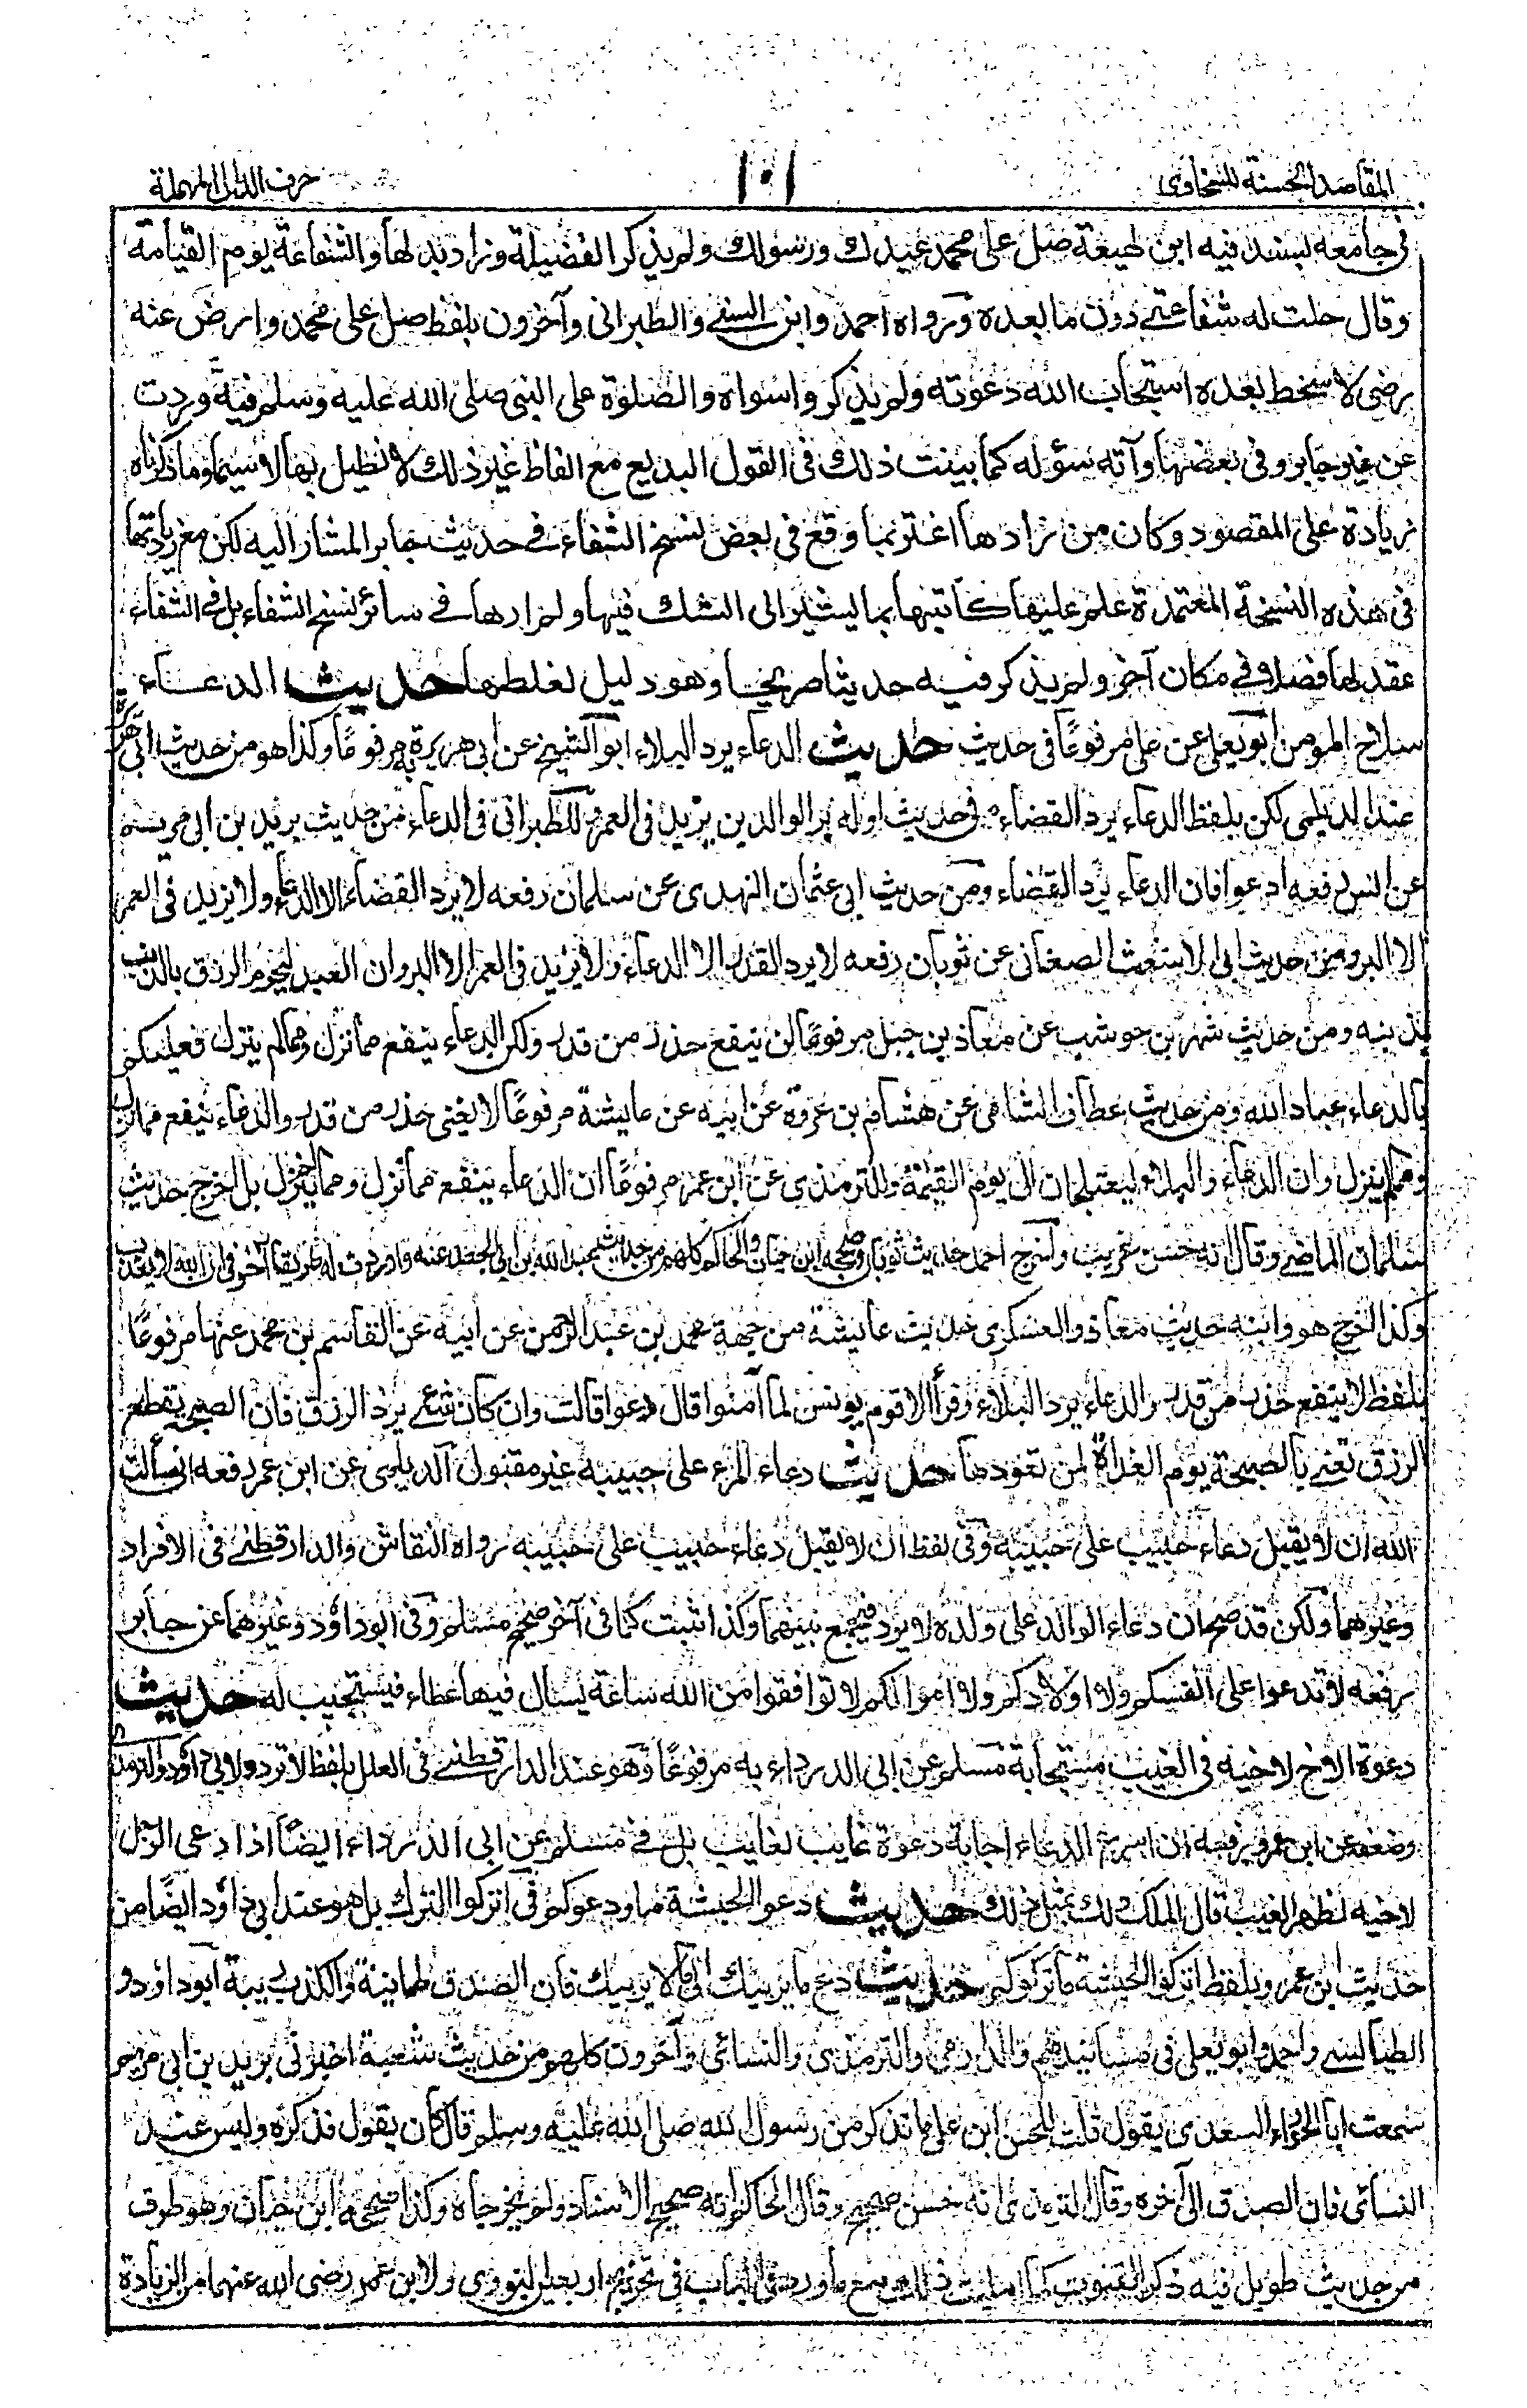 المقاصد الحسنة للسخاوى
١٠١
حرف الدال المهملة
فى جامعه بسند فيه ابن لهيعة صل على محمد عبدك ورسولك ولم يذكر الفضيلة وزاد بدلها والشفاعة يوم القيامة
وقال حلت له شفاعتى دون ما بعده ورواه احمد وابن السنى والطبرانى وآخرون بلفظ صل على محمد وارض عنه
رضى لا سخط بعده استجاب الله دعوته ولم يذكروا سواه والصلوة على النبى صلى الله عليه وسلم فيه وردت
عن غير جابر وفى بعضها وآته سؤله كما بينت ذلك فى القول البديع مع الفاظ غير ذلك لا نطيل بها لا سيما وما ذكرناه
زيادة على المقصود وكان من زادها اغتر بما وقع فى بعض نسخ الشفاء فى حديث جابر المشار اليه لكن مع زيادتها
فى هذه النسخة المعتمدة علم عليها كاتبها بما يشير الى الشك فيها ولم ارها فى سائر نسخ الشفاء بل فى الشفاء
عقد لها فصلا فى مكان آخر ولم يذكر فيه حديثا صريحا وهو دليل لغلطها حديث الدعاء
سلاح المومن ابو يعلى عن على مرفوعا فى حديث حديث الدعاء يرد البلاء ابو الشيخ عن ابى هريرة به مرفوعا وكذا هو من حديث ابى هريرة
عند الديلمى لكن بلفظ الدعاء يرد القضاء فى حديث اوله بر الوالدين يزيد فى العمر وللطبرانى فى الدعاء من حديث يزيد بن ابى مريم
عن انس رفعه ادعوا فان الدعاء يرد القضاء ومن حديث ابى عثمان النهدى عن سلمان رفعه لا يرد القضاء الا الدعاء ولا يزيد فى العمر
الا البر ومن حديث ابى الاشعث الصغانى عن ثوبان رفعه لا يرد القدر الا الدعاء ولا يزيد فى العمر الا البر وان العبد ليحرم الرزق بالذنب
يذنبه ومن حديث شهر بن حوشب عن معاذ بن جبل مرفوعا لن ينفع حذر من قدر ولكن الدعاء ينفع مما نزل ومما لم ينزل فعليكم
بالدعاء عباد الله ومن حديث عطاف الشامى عن هشام بن عروة عن ابيه عن عايشة مرفوعا لا يغنى حذر من قدر والدعاء ينفع مما نزل
ومما لم ينزل وان الدعاء والبلاء ليعتلجان الى يوم القيمة وللترمذى عن ابن عمر مرفوعا ان الدعاء ينفع مما نزل ومما لم ينزل بل اخرج حديث
سلمان الماضى وقال انه حسن غريب واخرج احمد حديث ثوبان وصححه ابن حبان والحاكم كلهم من حديث عبد الله بن ابى الجعد عنه
وكذا اخرج هو وابنه حديث معاذ والعسكرى حديث عايشة من جهة محمد بن عبد الرحمن عن ابيه عن القاسم بن محمد عنها مرفوعا
بلفظ لا ينفع حذر من قدر والدعاء يرد البلاء وقرأ الا قوم يونس لما آمنوا قال دعوا قالت وان كان شىء يرد الرزق فان الصبحة تقطع
الرزق تعنى بالصبحة نوم الغداة لمن تعودها حديث دعاء المرء على حبيبه غير مقبول الديلمى عن ابن عمر رفعه انى سألت
الله ان لا يقبل دعاء حبيب على حبيبه وفى لفظ ان لا يقبل دعاء حبيب على حبيبه رواه النقاش والدارقطنى فى الافراد
وغيرهما ولكن قد صح ان دعاء الوالد على ولده لا يرد فيجمع بينهما وكذا ثبت كما فى آخر صحيح مسلم وفى ابو داؤد وغيرهما عن جابر
رفعه لا تدعوا على انفسكم ولا اولادكم ولا اموالكم لا توافقوا من الله ساعة يسال فيها عطاء فيستجيب له حديث
دعوة الاخ لاخيه فى الغيب مستجابة مسلم عن ابى الدرداء به مرفوعا وهو عند الدارقطنى فى العلل بلفظ لا ترد ولابى داؤد والترمذى
وضعفه عن ابن عمرو رفعه ان اسرع الدعاء اجابة دعوة غايب لغايب بل فى مسلم عن ابى الدرداء ايضا اذا دعى الرجل
لاخيه بظهر الغيب قال الملك ولك بمثل ذلك حديث دعوا الحبشة ما ودعوكم فى اتركوا الترك بل هو عند ابى داؤد ايضا من
حديث ابن عمرو بلفظ اتركوا الحبشة ما تركوكم حديث دع ما يريبك الى ما لا يريبك فان الصدق طمانينة والكذب ريبة ابو داؤد
الطيالسى واحمد وابو يعلى فى مسانيدهم والدارمى والترمذى والنسائى وآخرون كلهم من حديث شعبة اخبرنى بريد بن ابى مريم
سمعت ابا الحوراء السعدى يقول قلت للحسن ابن على ما تذكر من رسول الله صلى الله عليه وسلم قال كان يقول فذكره وليس عند
النسائى فان الصدق الى آخره وقال الترمذى انه حسن صحيح وقال الحاكم انه صحيح الاسناد ولم يخرجاه وكذا صححه ابن حبان وهو طرف
من حديث طويل فيه ذكر القنوت كما امليت ذلك مع ما ورد فى الباب فى تخريج اربعين النووى ولابن عمر رضى الله عنهما من الزيادة